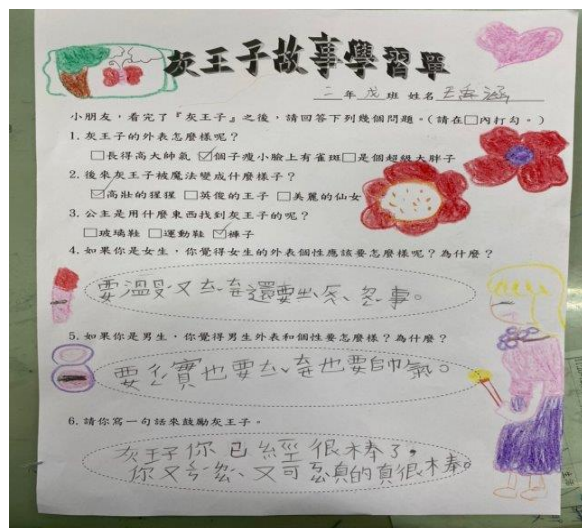 灰王子故事學習單
二年戊班 姓名 王
小朋友,看完了『灰王子』之後,請回答下列幾個問題。(請在□內打勾。)
1. 灰王子的外表怎麼樣呢?
□長得高大帥氣 ☑個子瘦小臉上有雀斑□是個超級大胖子
2. 後來灰王子被魔法變成什麼樣子?
☑高壯的猩猩 □英俊的王子 □美麗的仙女
3. 公主是用什麼東西找到灰王子的呢?
□玻璃鞋 □運動鞋 ☑褲子
4. 如果你是女生,你覺得女生的外表個性應該要怎麼樣呢?為什麼?
要溫又 還要 事。
5. 如果你是男生,你覺得男生外表和個性要怎麼樣?為什麼?
要 實也要 也要帥氣。
6. 請你寫一句話來鼓勵灰王子。
灰王子你已經很棒了,
你又 又可 真的真很棒。